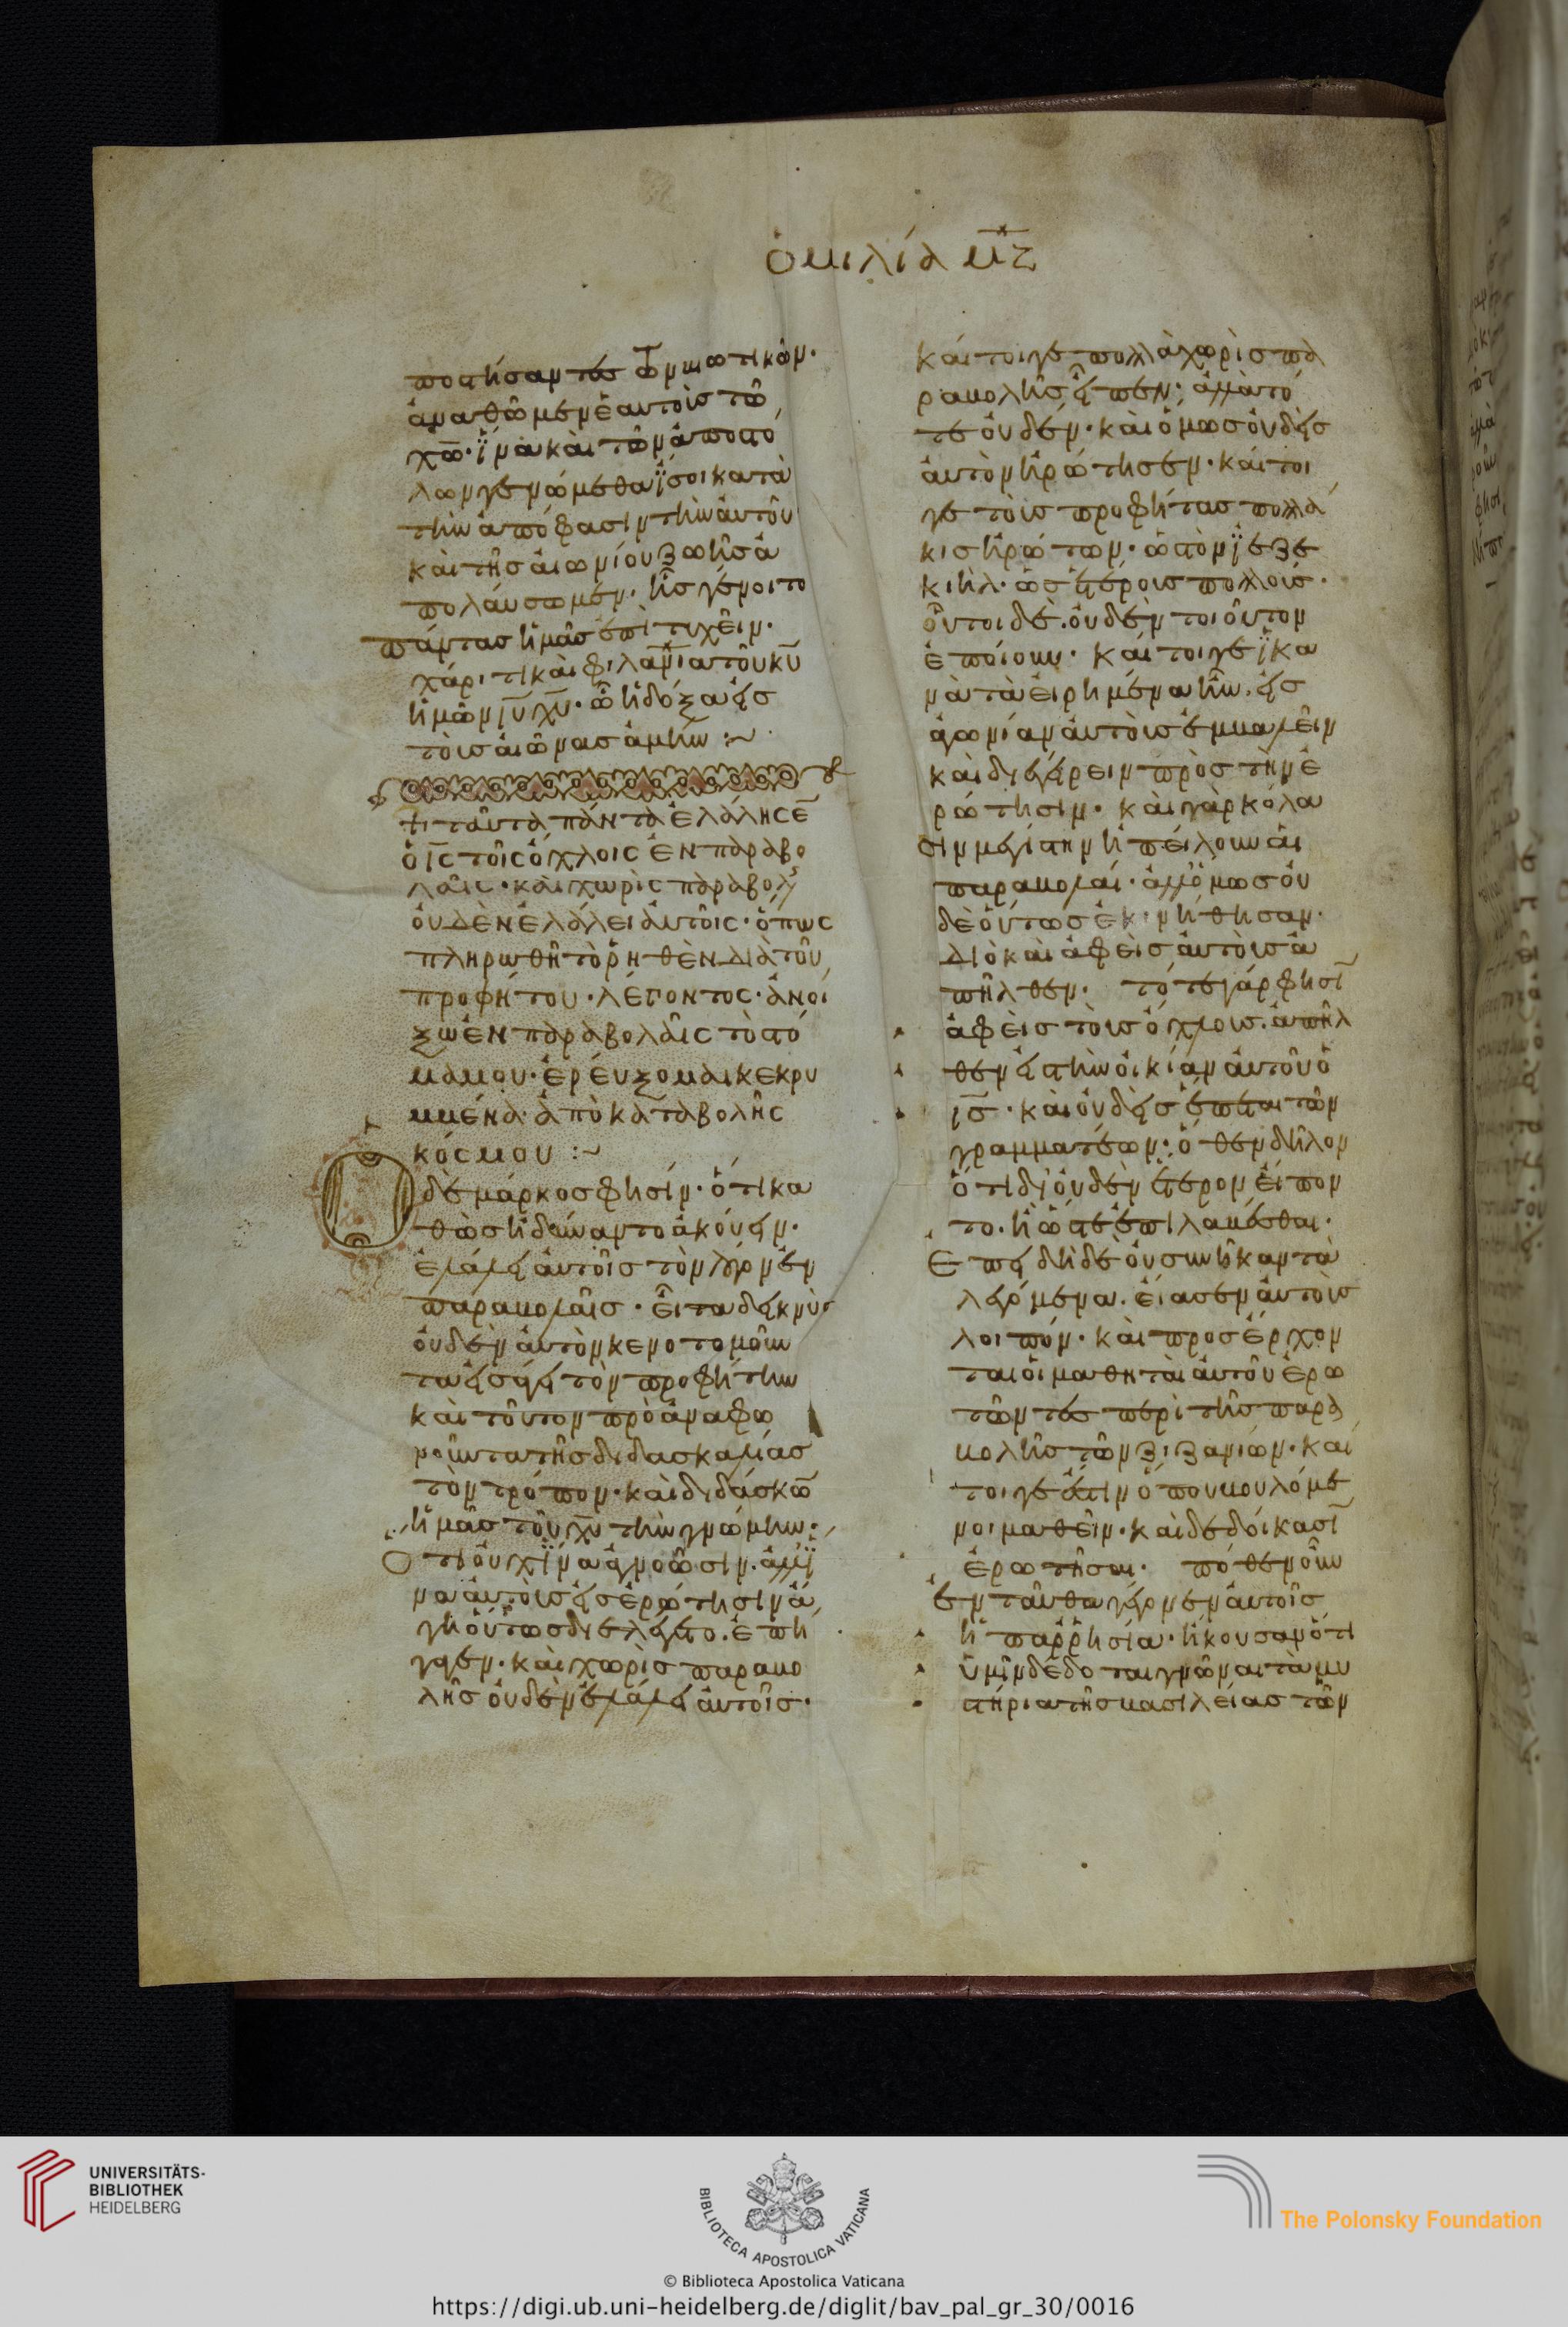 ὁμιλία μζ
ποστήσαντες τῶν βιωτικῶν·
ἀναθῶμεν ἑαυτοὺς τῶ
χω̅· ἵνα καὶ τῶν ἀποστό
λων γενώμεθα ἴσοι κατὰ
τὴν ἀπόφασιν τὴν αὐτοῦ
καὶ τῆς αἰωνίου ζωῆς ἀ
πολαύσωμεν· ἧς γένοιτο
πάντας ἡμᾶς ἐπιτυχεῖν·
χάριτι καὶ φιλαν̅ια τοῦ κυ̅
ἡμῶν ιυ̅ χυ̅· ὧ ἡ δόξα εἰς
τοὺς αἰῶνας ἀμήν :~
ταῦτα πάντα ἐλάλησε̅
ὁ ις̅ τοῖς ὄχλοις ἐν παραβο
λαῖς· καὶ χωρὶς παραβολῆς
οὐδὲν ἐλάλει αὐτοῖς· ὅπως
πληρωθῆ τὸ ῥηθὲν διὰ τοῦ
προφήτου· λέγοντος· ἀνοί
ξω ἐν παραβολαῖς τὸ στό
μα μου· ἐρεύξομαι κεκρυ
μμένα ἀπὸ καταβολῆς
κόσμου :~
Ὁ δὲ μάρκος φησίν· ὅτι κα
θὼς ἠδύναντο ἀκούειν·
ἐλάλει αὐτοῖς τὸν λόγον ἐν
παραβολαῖς· εἶτα δεικνὺς
οὐδὲν αὐτὸν κενοτομοῦν
τα εἰσάγει τὸν προφήτην
καὶ τοῦτον προαναφω
νοῦντα τῆς διδασκαλίας
τὸν τρόπον· καὶ διδάσκω̅
ἡμᾶς τοῦ χυ̅ τὴν γνώμην·
ὅτι οὐχ ἵνα ἀγνοῶσιν· ἀλλ' ἵ
να αὐτοὺς εἰς ἐρώτησιν ἀ
γη οὕτως διελέγετο· ἐπή
γαγεν· καὶ χωρὶς παραβο
λῆς οὐδὲν ἐλάλει αὐτοῖς·
καίτοιγε πολλὰ χωρὶς πα
ραβολῆς εἶπεν· ἀλλὰ τό
τε οὐδέν· καὶ ὅμως οὐδεὶς
αὐτὸν ἠρώτησεν· καίτοι
γε τοὺς προφήτας πολλά
κις ἠρώτων· ὡς τὸν ϊεζε
κιήλ· ὡς ἑτέρους πολλούς·
οὗτοι δὲ οὐδὲν τοιοῦτον
ἐποίουν· καίτοιγε ϊκα
νὰ τὰ εἰρημένα ἦν· εἰς
ἀγωνίαν αὐτοὺς ἐμβαλεῖν
καὶ διεγείρειν πρὸς τὴν ἐ
ρώτησιν· καὶ γὰρ κόλα
σιν μεγίστην ἠπείλουν αἱ
παραβολαί· ἀλλ' ὅμως οὐ
δὲ οὕτως ἐκινήθησαν·
διὸ καὶ ἀφεὶς αὐτοὺς ἀ
πῆλθεν· τότε γάρ φησι̅
ἀφεὶς τοὺς ὄχλους· ἀπῆλ
θεν εἰς τὴν οἰκίαν αὐτοῦ ὁ
ις̅· καὶ οὐδεὶς ἕπεται τῶν
γραμματέων· ὅθεν δῆλον
ὅτι δι' οὐδὲν ἕτερον εἵπον
το· ἢ ὥστε ἐπιλαβέσθαι·
Ἐπειδὴ δὲ οὐ συνῆκαν τὰ
λεγόμενα· εἴασεν αὐτοὺς
λοιπόν· καὶ προσέρχον
ται οἱ μαθηταὶ αὐτοῦ ἐρω
τῶντες περὶ τῆς παρα
βολῆς τῶν ζιζανίων· καί
τοιγε ἔστιν ὅπου βουλόμε
νοι μαθεῖν· καὶ δεδοίκασι̅
ἐρωτῆσαι· πόθεν οὖν
ἐνταῦθα γέγονεν αὐτοῖς
ἡ παρρησία· ἤκουσαν ὅτι
ὑμῖν δέδοται γνῶναι τὰ μυ
στήρια τῆς βασιλείας τῶν
UNIVERSITÄTS-
BIBLIOTHEK
HEIDELBERG
BIBLIOTECA APOSTOLICA VATICANA
© Biblioteca Apostolica Vaticana
The Polonsky Foundation
https://digi.ub.uni-heidelberg.de/diglit/bav_pal_gr_30/0016